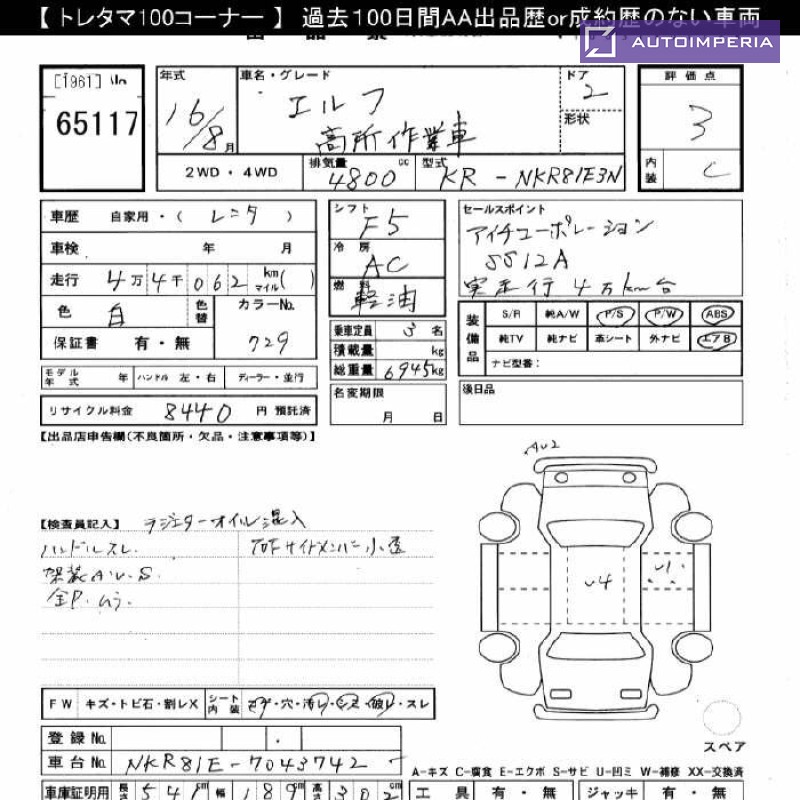 【 トレタマ100コーナー 】 過去100日間AA出品歴or成約歴のない車両
AUTOIMPERIA
[1961]
65117
年式
16/8月
車名・グレード
エルフ
高所作業車
ドア
2
形状
評価点
3
内装
C
2WD・4WD
排気量 4800 cc
型式 KR-NKR81E3N
車歴 自家用・( レンタ )
車検 年 月
走行 4万4千062 km マイル( )
色 白
色替
カラーNo.
729
保証書 有・無
シフト F5
冷房 AC
燃料 軽油
乗車定員 3名
積載量 kg
総重量 6945kg
名変期限
月 日
セールスポイント
アイチコーポレーション
SS12A
実走行 4万km台
装備品
S/R 純A/W P/S P/W ABS
純TV 純ナビ 革シート 外ナビ エアB
ナビ型番:
後日品
モデル年式 年 ハンドル 左・右 ディーラー・並行
リサイクル料金 8440 円 預託済
【出品店申告欄(不良箇所・欠品・注意事項等)】
AU2
【検査員記入】 ラジエターオイル混入
ハンドルスレ.
架装A.U.S.
全P.ムラ.
サイドメンバー小歪
U4
U1
FW キズ・トビ石・割レX シート内装 コゲ・穴・汚レ・シミ・破レ・スレ
登録No.
車台No. NKR81E-7043742
スペア
A-キズ C-腐食 E-エクボ S-サビ U-凹ミ W-補修 XX-交換済
車庫証明用 長さ 541 幅 189 高さ 302 cm
工具 有・無 ジャッキ 有・無